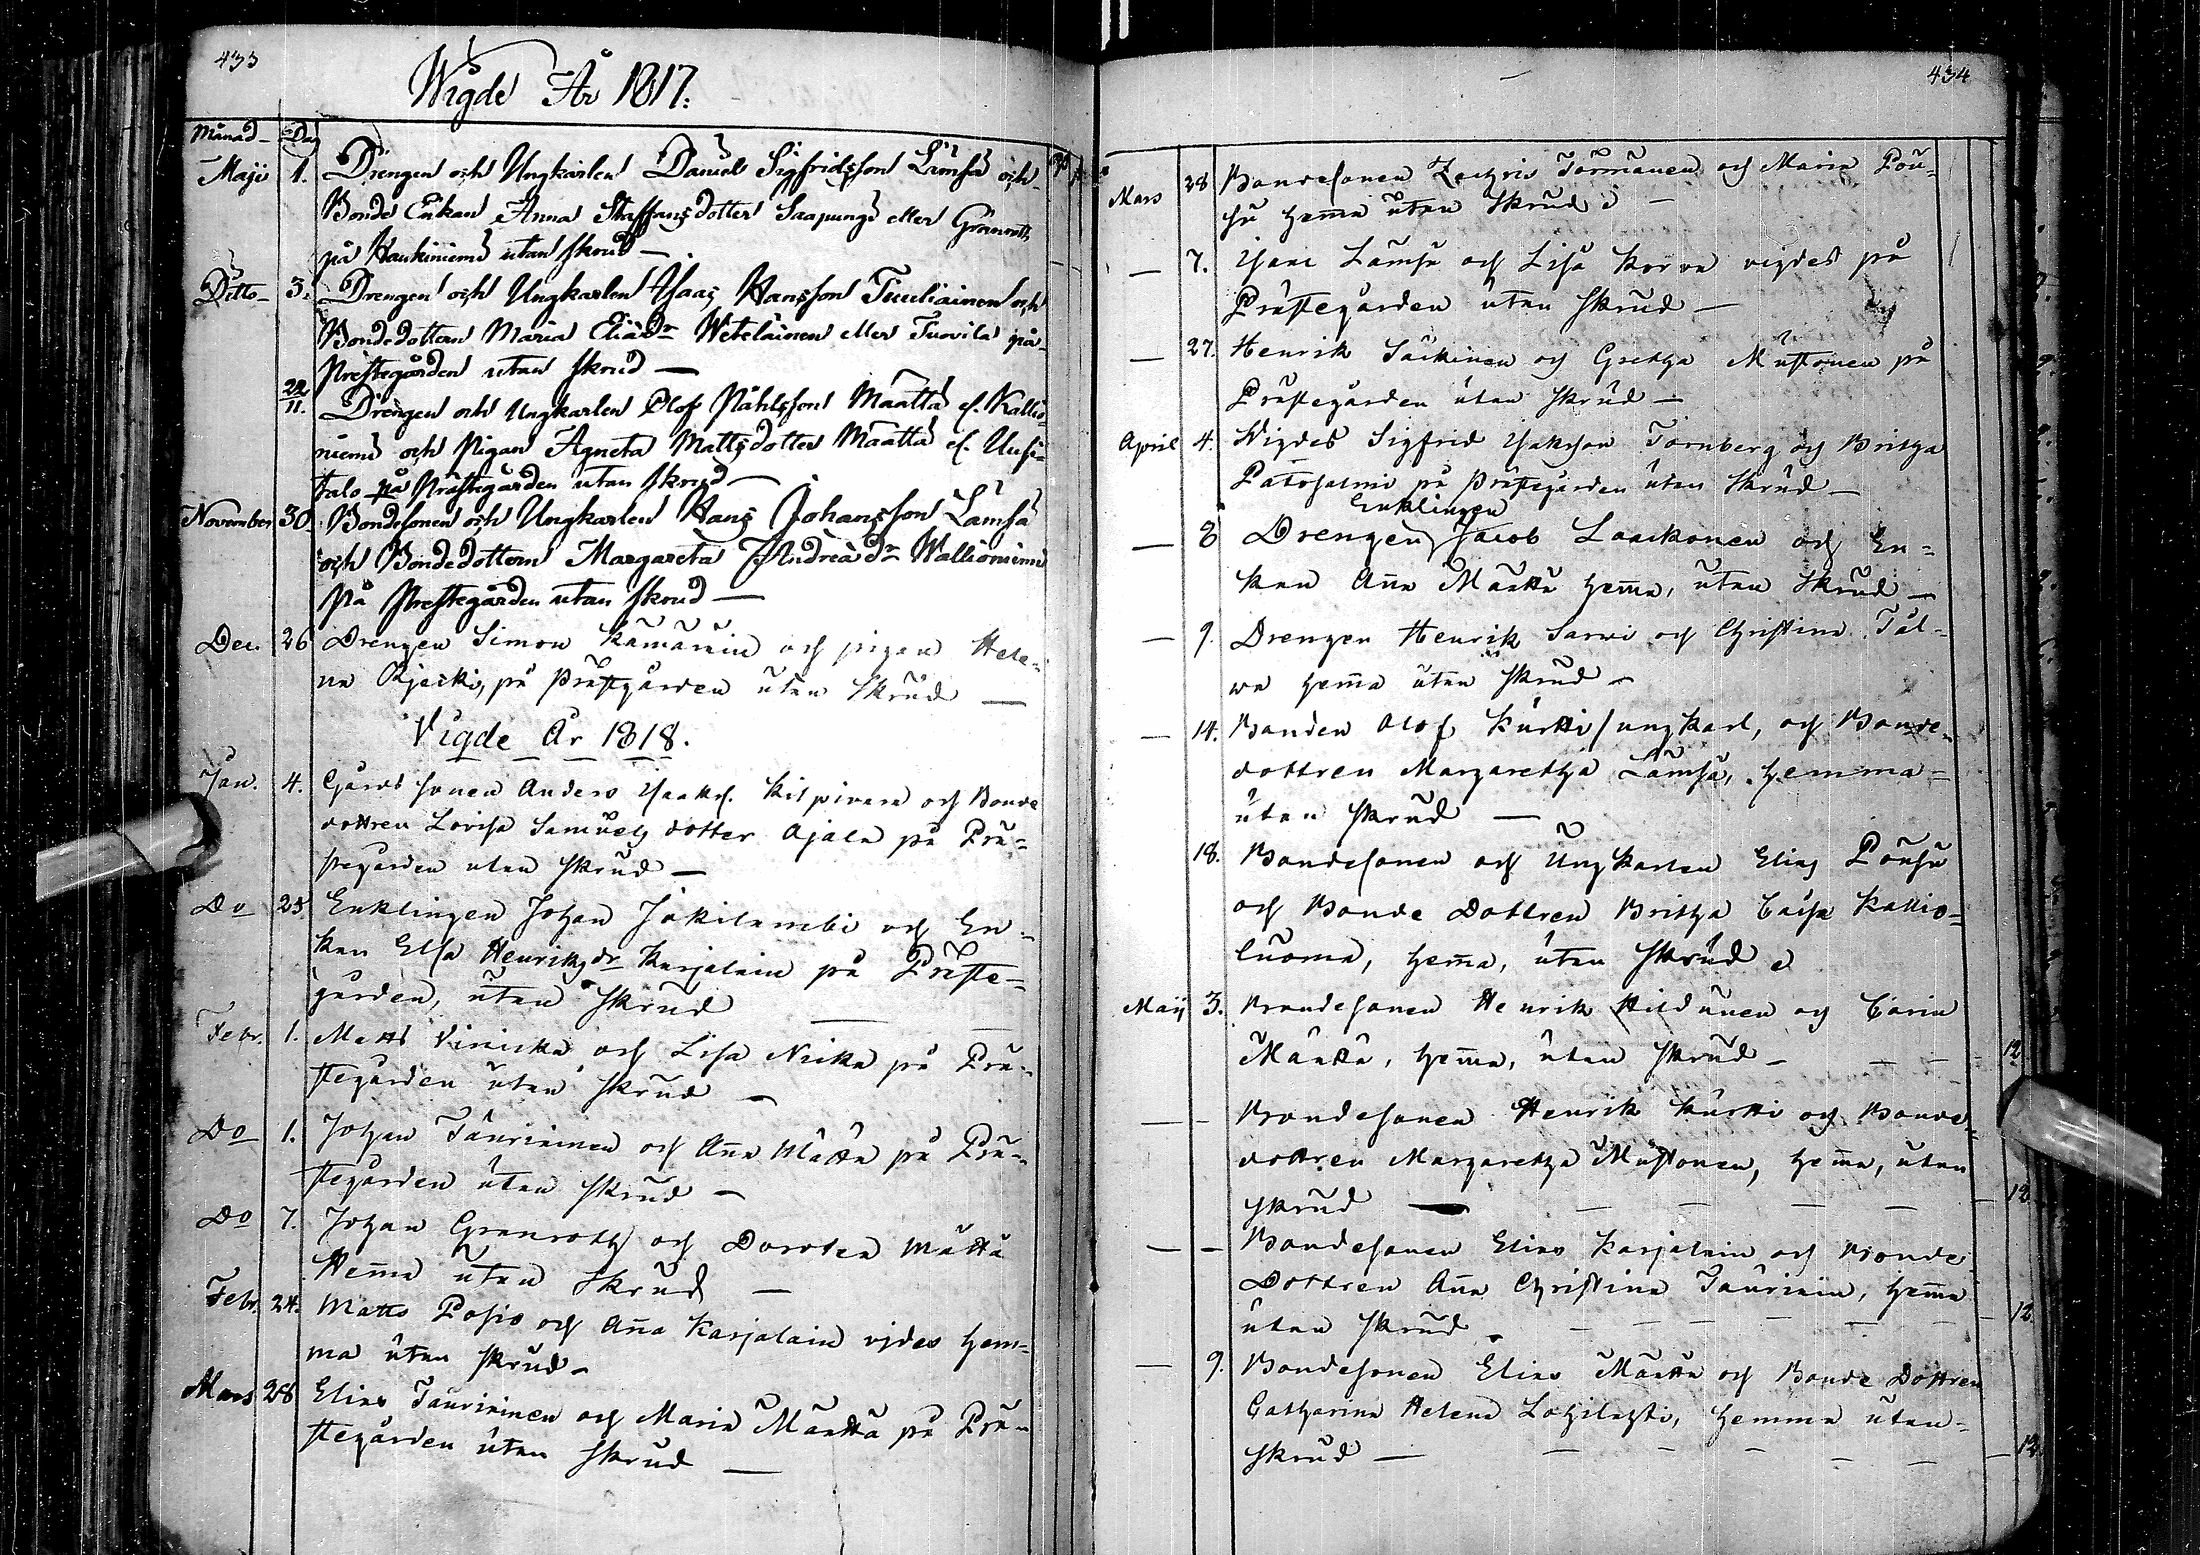 433
Wigde År 1817.
Månad Dag
Maji 1. Drengen och Ungkarlen Daniel Sigfridsson Lämsä och
Bonde Enkan Anna Staffansdotter Saapungi eller Grönroth
på Haukiniemi utan skrud —
Ditto 3. Drengen och Ungkarlen Isaac Hansson Tuuliainen och
Bondedottern Maria Eliædr Weteläinen eller Tuovila på
Prestegården utan skrud —
22/11. Drengen och Ungkarlen Olof Påhlsson Määttä el. Kallio-
niemi och Pigan Agneta Mattsdotter Määttä el. Uusi-
talo på Prästegården utan skrud —
November 30. Bondesonen och Ungkarlen Hans Johansson Lämsä
och Bondedottern Margareta Andreædr Wallioniemi
på Prestegården utan skrud —
Dec. 26 Drengen Simon Kämäräin och pigan Hele-
na Kjecki, på Prästgården utan Skrud —
Vigde År 1818.
Jan. 4. Gårds sonen Anders Isaaks. Kilpivara och Bonde
dottren Lovisa Samuels dotter Ajala på Prä-
stegården utan skrud —
Do 25 Enklingen Johan Jokilambi och En-
kan Elsa Henriksdr Karjalain på Präste-
gården, utan Skrud —
Febr. 1. Matts Viricka och Lisa Nicka på Prä-
stegården utan skrud —
Do 1. Johan Tauriainen och Aña Mätta på Prä-
stegården utan skrud —
Do 7. Johan Granroth och Dorotea Mätta
Hem̃a utan Skrud —
Febr. 24. Matts Posio och Aña Karjalain vijdes hem-
ma utan skrud —
Mars 28 Elias Tauriainen och Maria Määttä på Prä-
stegården utan skrud —
434
Mars 28 Bondesonen Zachris Törmänen och Maria Pou-
su hem̃a utan Skrud
— 7. Isaac Lämsä och Lisa Korva vigdes på
Prästegården utan Skrud —
— 27. Henrik Säckinen och Gretha Mustonen på
Prästegården utan Skrud —
April 4. Vigdes Sigfrid Isaksson Tornberg och Britha
Patosalmi på Prästegården utan Skrud —
Enklingen
— 8 Drengen Jacob Laackonen och En-
kan Aña Määttä hem̃a, utan Skrud —
— 9. Drengen Henrik Sarvi och Christina Tal-
wa hem̃a utan skrud —
— 14. Bonden Olof Kurtti ungkarl, och Bonde-
dottren Margaretha Lämsä, hemma-
utan skrud —
18. Bondesonen och Ungkarlen Elias Pousu
och Bonde Dottren Britha Caisa Kallio-
luoma, hem̃a, utan skrud
Maij 3. Bondesonen Henrik Hildunen og Carin
Määttä, hem̃a, utan skrud — — — 12
— - Bondesonen Henrik Kurtti och Bonde-
dottren Margaretha Mustonen, hem̃a, utan
skrud — — — — — — 12
— - Bondesonen Elias Karjalain och Bonde
Dottren Aña Christina Tauriain, hem̃a
utan skrud — — — — — — 12.
— 9. Bondesonen Elias Määttä och Bonde Dottren
Catharina Helena Lohilahti, hemma utan-
skrud — — — — — — — 12